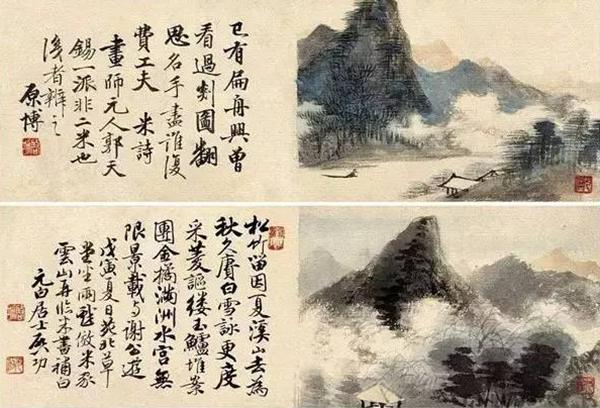 已有扁舟興曾
看過剡圖翻
思名手畫誰復
費工夫 米詩
畫師元人郭天
錫一派非二米也
者辨之
原博
松竹留因夏溪山去為
秋久賡白雪詠更度
采菱謳縷玉鱸堆案
團金橘滿洲水宮無
限景載與謝公遊
戊寅夏日苑北草
堂坐雨戲倣米家
雲山再臨米書補白
元白居士啟功